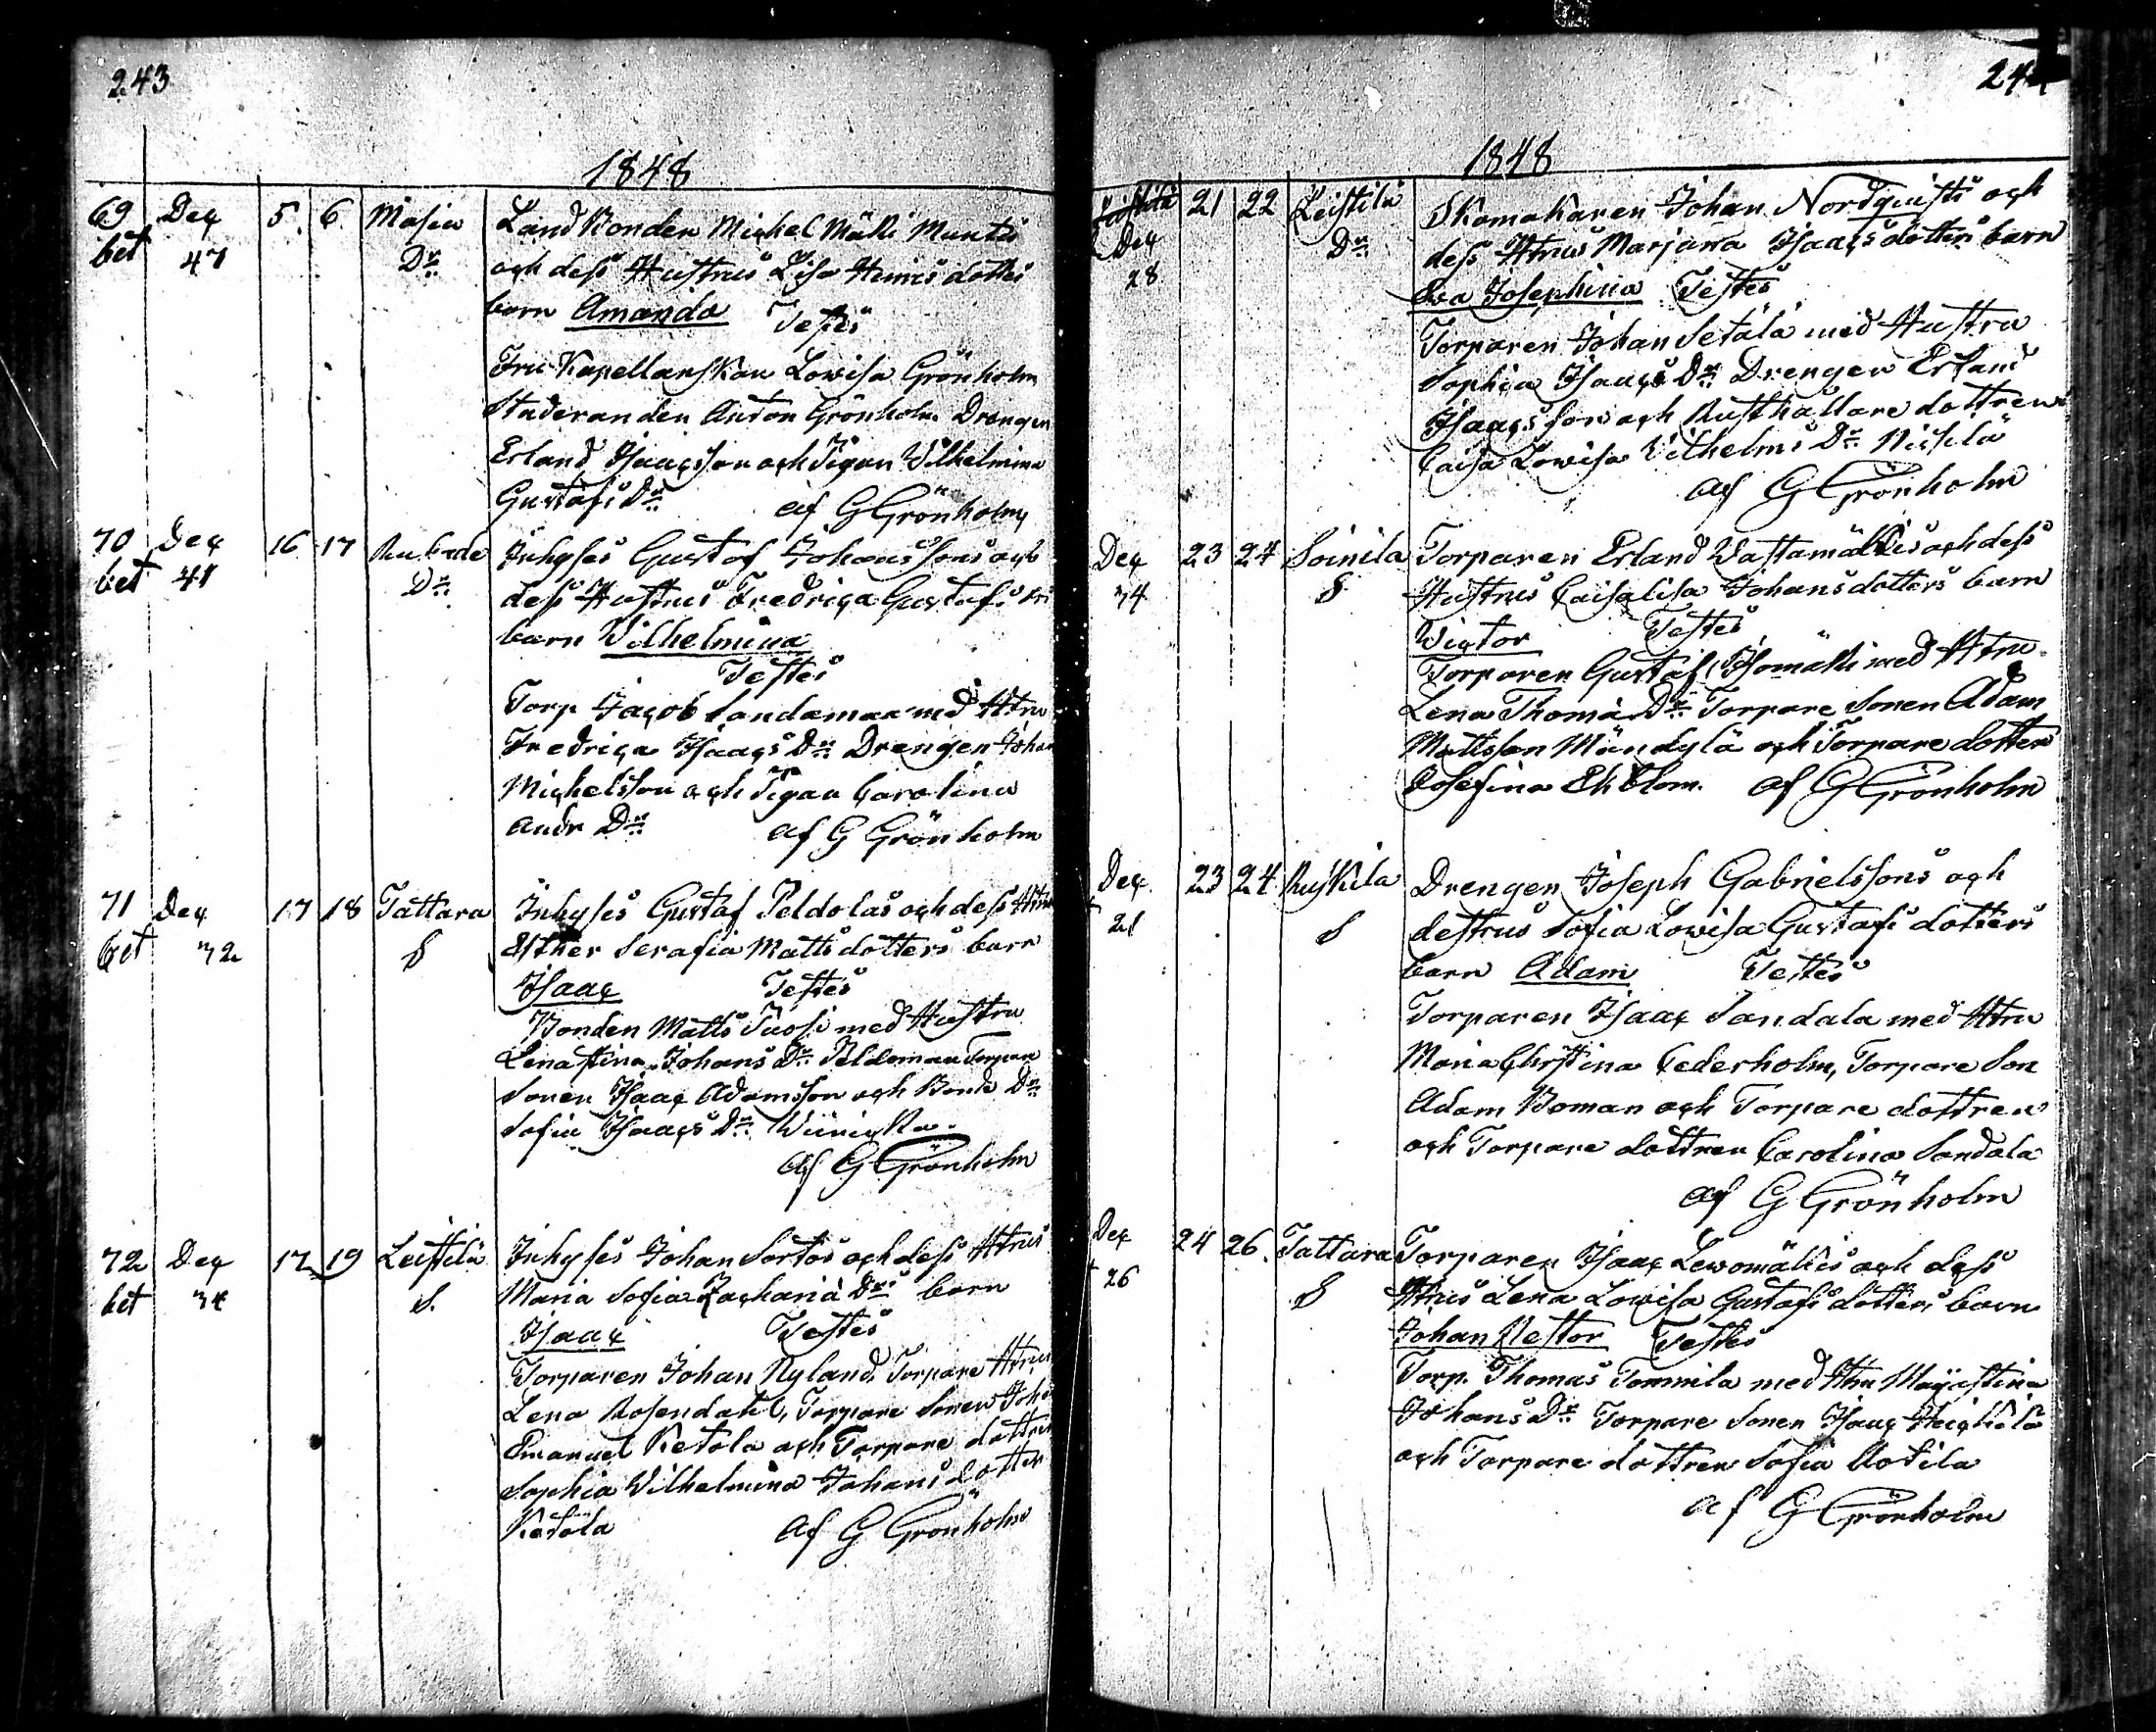 243
1848
69 Dec 5 6 Masia Landbonden Michel Mäki Muntis
bet 47 Dr och dess Hustrus Lisa Henrics dotters
barn Amanda Testes
Fru Kapellanskan Lovisa Grönholm
Studeranden Anton Grönholm Drengen
Erland Isaacsson och Pigan Wilhelmina
Gustafs Dr af G Grönholm
70 Dec 16 17 Inhyses Gustaf Johanssons och
bet 41 Dr dess Hustrus Fredrica Gustafs Drs
barn Vilhelmina
Testes
Torp Jacob Sandamaa med Htru
Fredrica Isaacs Dr Drengen Johan
Michelsson och Pigan Carolina
Andr Dr af G Grönholm
71 Dec 17 18 Tattara Inhyses Gustaf Peldolas och dess Htrus
bet 32 S Esther Serafia Matts dotters barn
Isaac Testes
Bonden Matts Tuosi med Hustru
Lena Stina Johans Dr Peldoman Torpare
Sonen Isaac Adamsson och Bonde Dr
Sofia Isaacs Dr
af G Grönholm
72 Dec 17 19 Leistilä Inhyses Johan Sortos och dess Htrus
bet 34 S. Maria Sofia Zachariä Drs barn
Isaac Testes
Torparen Johan Nyland, Torpare Htrun
Lena Rosendahl, Torpare Sonen Joh
Emanuel Ketola och Torpare dottren
Sophia Wilhelmina Johans dotter
Ketola af G Grönholm
244
1848
Leistilä 21 22 Leistilä Skomakaren Johan Nordqvists och
Dec Dr dess Htrus Marjana Isaacs dotters barn
28 Eva Josephina Testes
Torparen Johan Setälä med Hustru
Sophia Isaacs Dr Drengen Erland
Isaacsson och Rusthållare dottren
Caisa Lovisa Vilhelms Dr
af G Grönholm
Dec 23 24 Soinila Torparen Erland Wastamäkis och dess
34 S Hustrus Caisalisa Johansdotters barn
Wictor Testes
Torparen Gustaf Isomäki med Htru
Lena Thomä Dr Torpare Sonen Adam
Mattsson Mändylä och Torpare dotter
Josefina Ekblom. af G Grönholm
Dec 23 24 Ruskila Drengen Joseph Gabrielssons och
21 S Hustrus Sofia Lovisa Gustafs dotters
barn Adam Testes
Torparen Isaac Sandala med Htru
Maria Christina Cederholm, Torpare Son
Adam Boman och Torpare dottren
och Torpare dottren Carolina Sandala
af G Grönholm
Dec 24 26 Tattara Torparen Isaac Lewomäkis och dess
26 S Htrus Lena Lovisa Gustafs dotters barn
Johan Nestor Testes
Torp. Thomas Tommila med Htru Majastina
Johans Dr Torpare Sonen Isaac Heickilä
och Torpare dottren Sofia Aotila
af G Grönholm